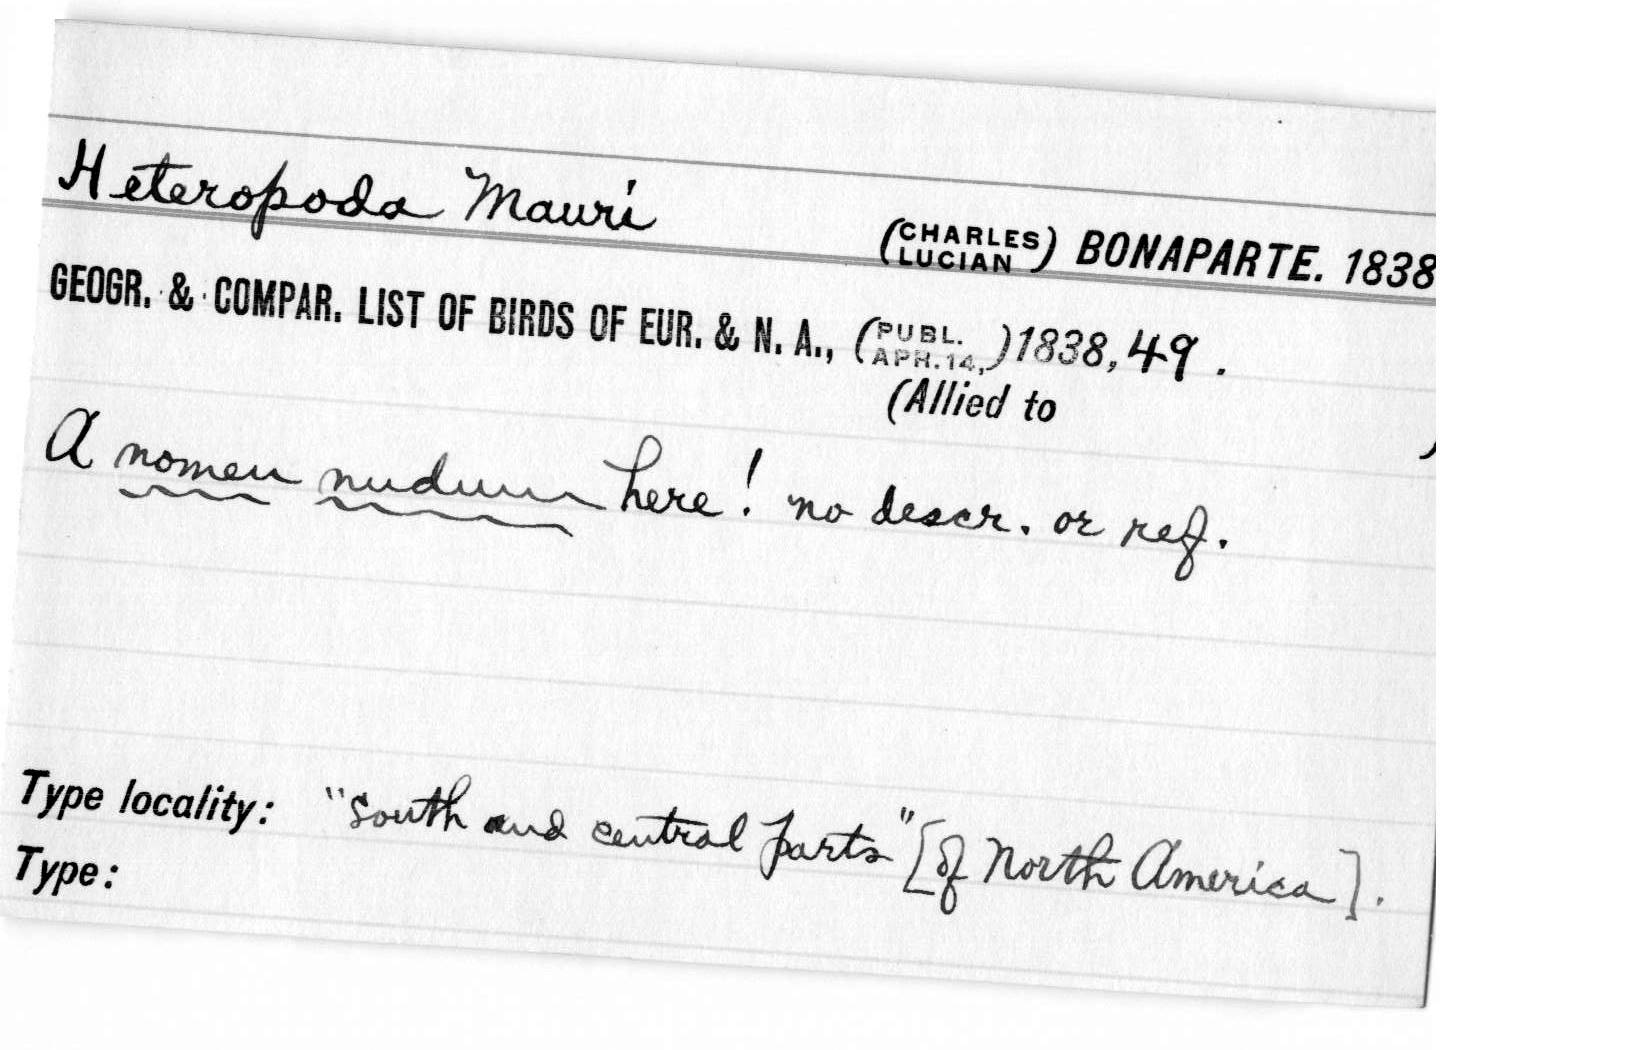 Heteropoda Mauri (CHARLES LUCIAN) BONAPARTE. 1838
GEOGR. & COMPAR. LIST OF BIRDS OF EUR. & N. A., (PUBL. APR. 14,) 1838, 49.
(Allied to )
A nomen nudum here! no descr. or ref.
Type locality: "south and central parts" [of North America].
Type: